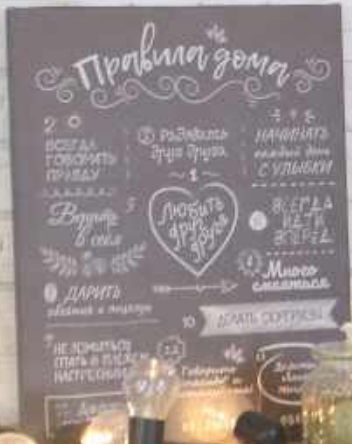 Правила дома
ВСЕГДА
ГОВОРИТЬ
ПРАВДУ
Радовать
друг друга
НАЧИНАТЬ
каждый день
С УЛЫБКИ
Верить
в себя
ЛЮБИТЬ
друг
друга
ВСЕГДА
ИДТИ
ВПЕРЁД
Много
смеяться
ДАРИТЬ
объятия и поцелуи
10
ДЕЛАТЬ СЮРПРИЗЫ
НЕ ЛОЖИТЬСЯ
СПАТЬ В ПЛОХОМ
НАСТРОЕНИИ
12
Говорить